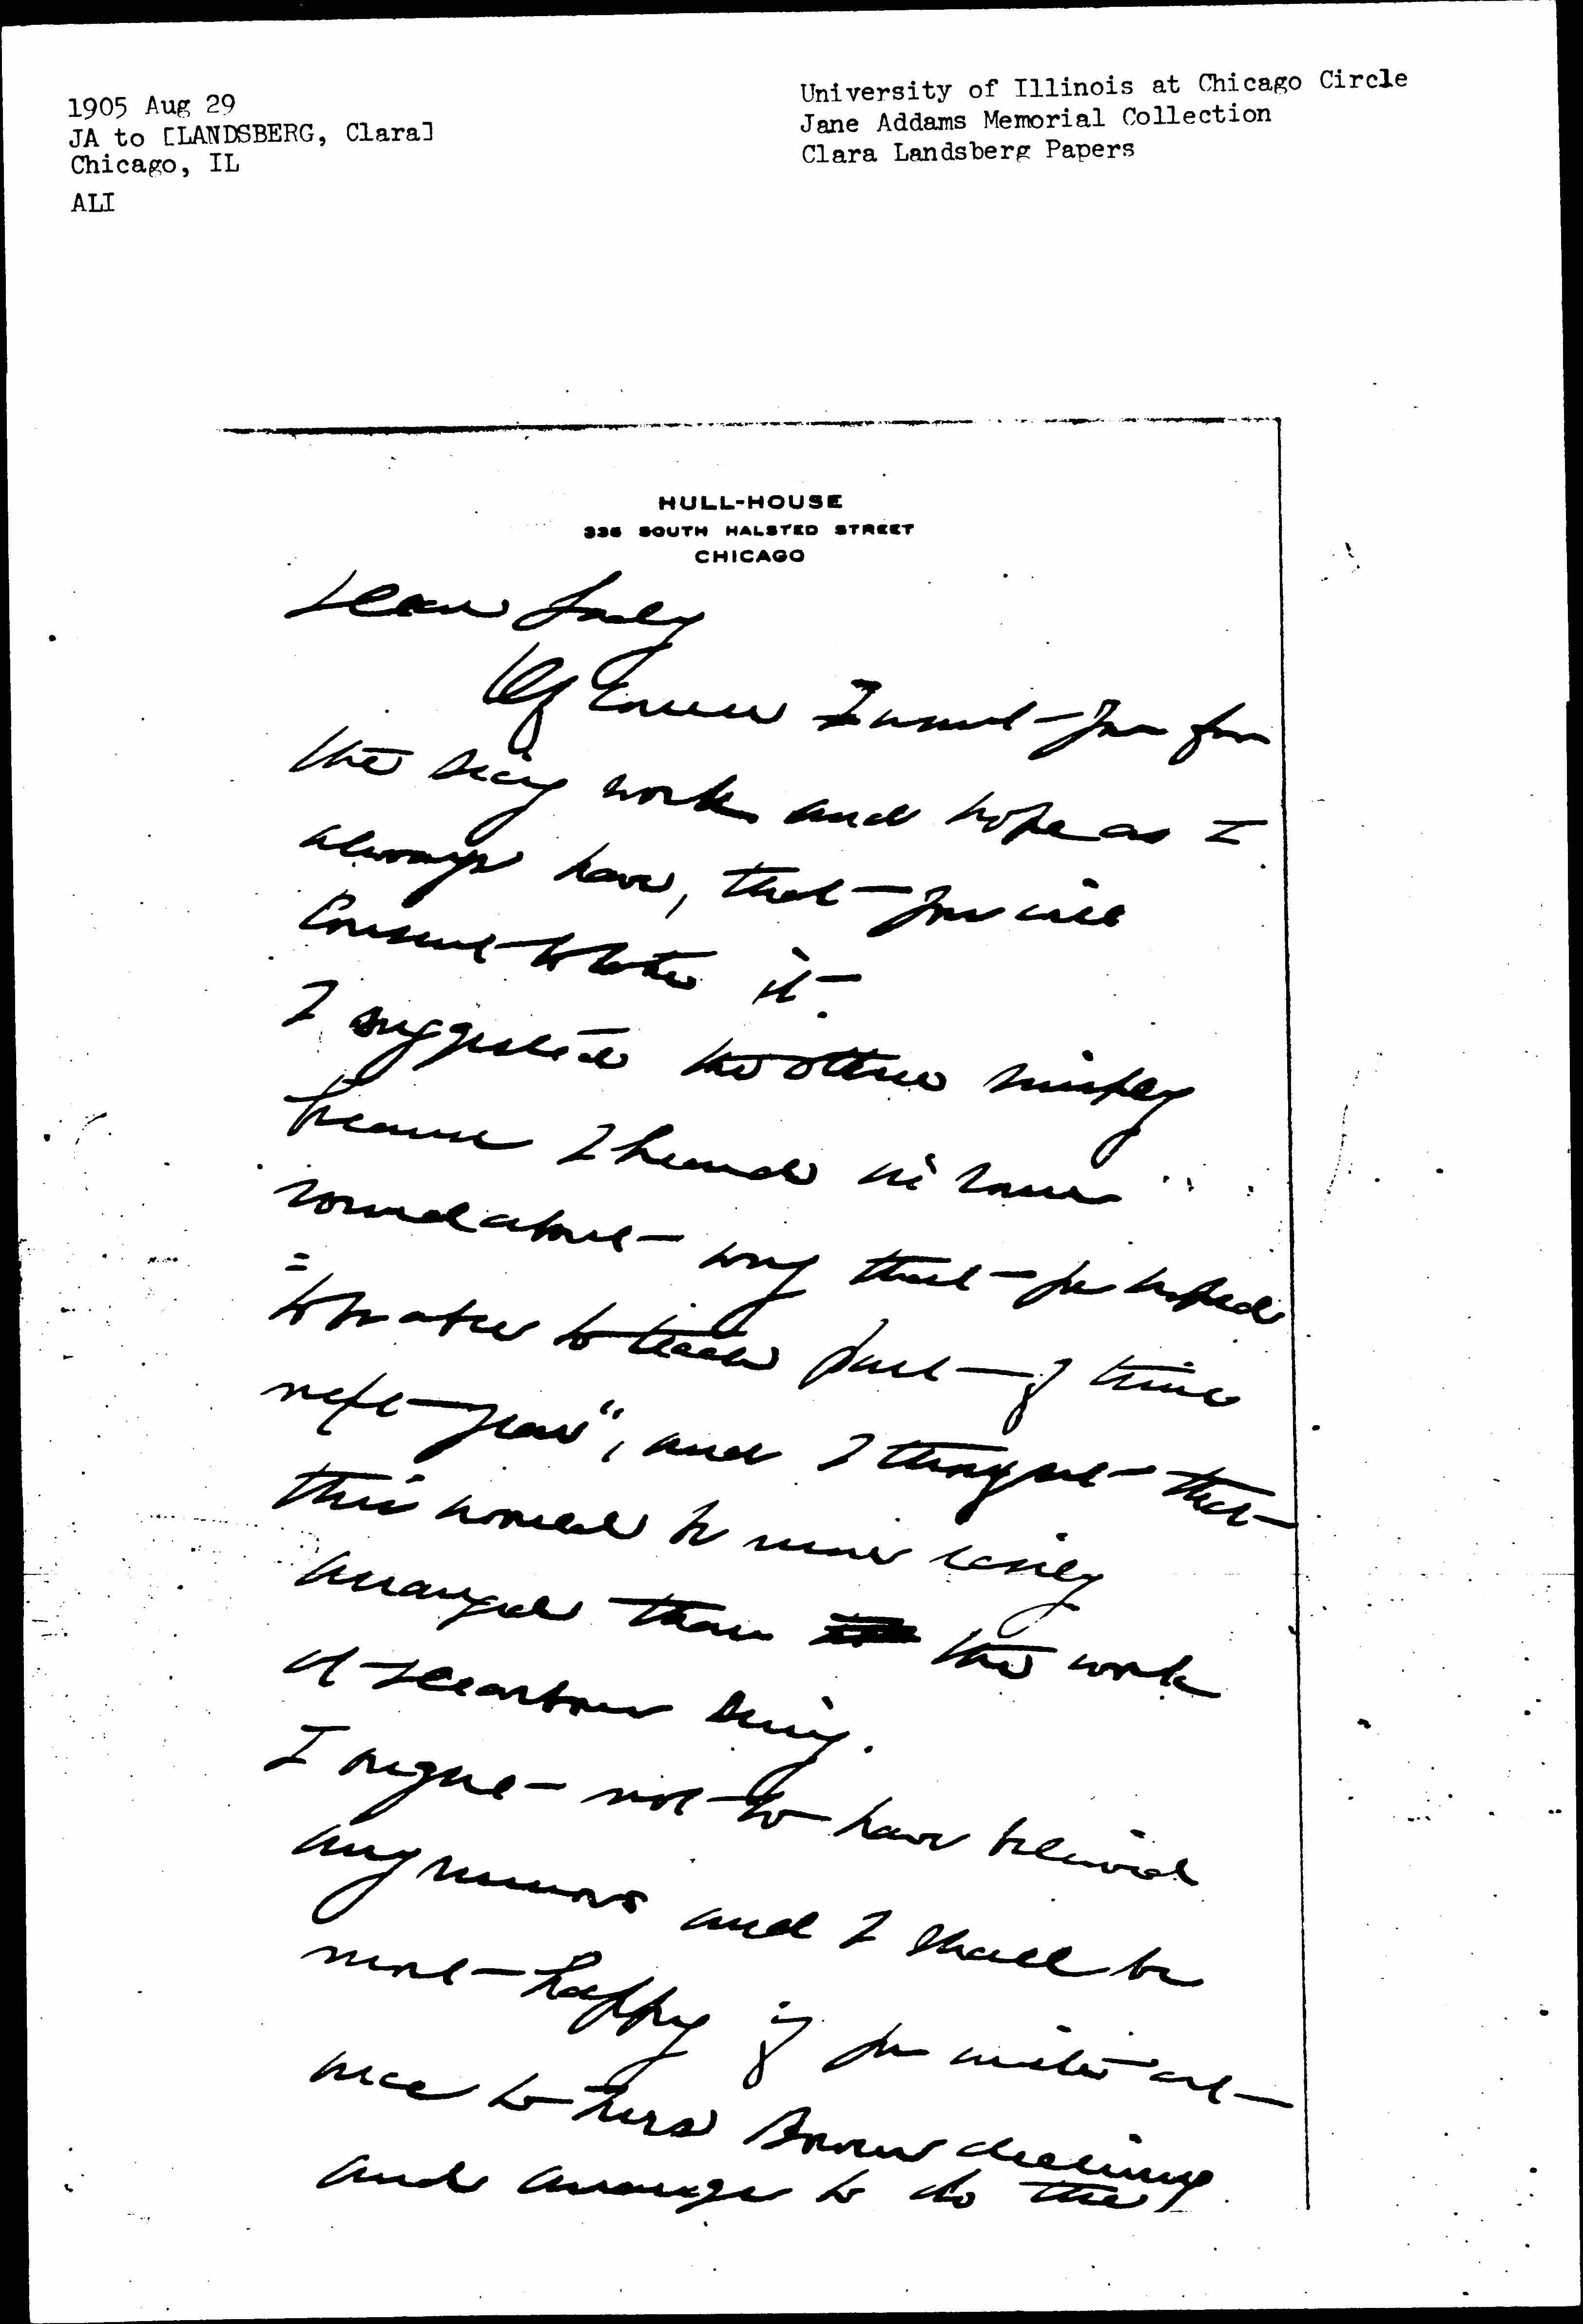 1905 Aug 29
JA to [LANDSBERG, Clara]
Chicago, IL
ALI
University of Illinois at Chicago Circle
Jane Addams Memorial Collection
Clara Landsberg Papers
HULL-HOUSE
335 SOUTH HALSTED STREET
CHICAGO
Dear Lady
Of course I want you for
the work and hope as I
always have, that you will
consent to take it.
I suggested the other simply
because I heard in some
roundabout way that you hoped
"to be able to teach part of time
next year", and I thought that
this would be more easily
arranged than the work
at
I regret not to have believed
any rumors and I shall be
most happy if you write at
once to Miss declining
and arrange to do the